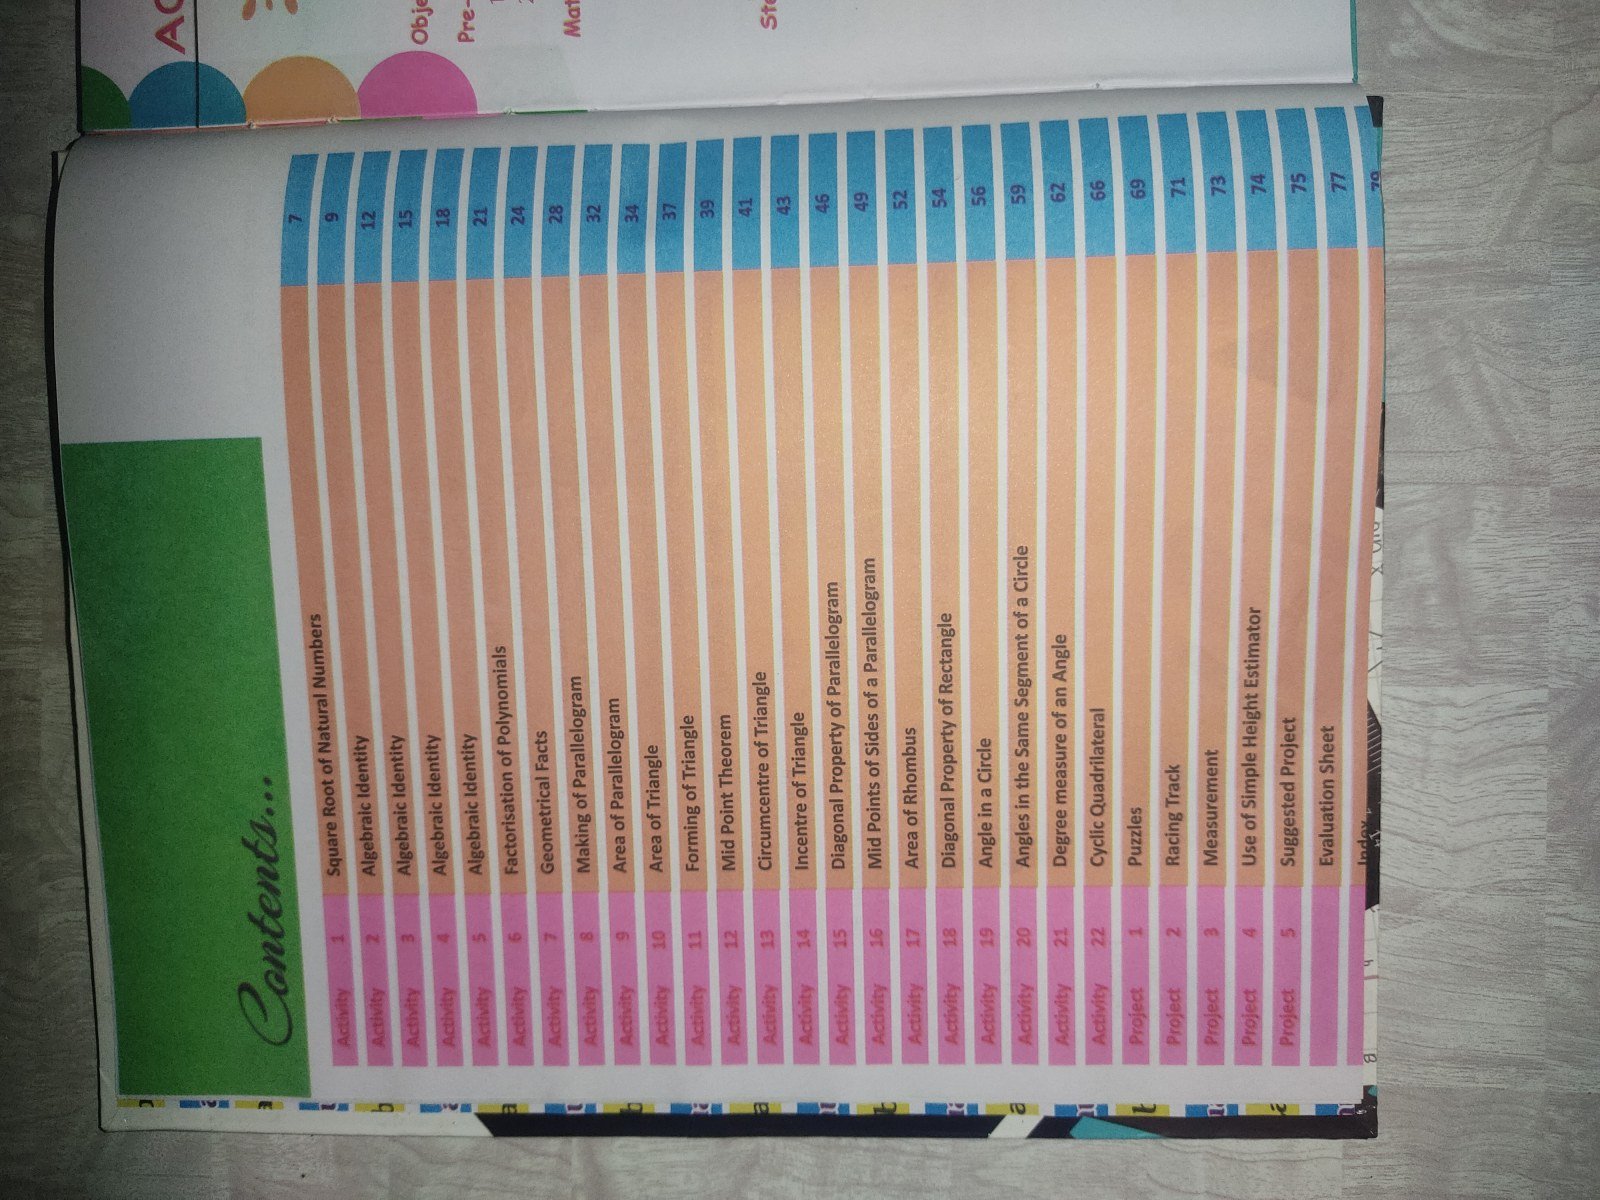 Contents...
Activity 1 Square Root of Natural Numbers 7
Activity 2 Algebraic Identity 9
Activity 3 Algebraic Identity 12
Activity 4 Algebraic Identity 15
Activity 5 Algebraic Identity 18
Activity 6 Factorisation of Polynomials 21
Activity 7 Geometrical Facts 24
Activity 8 Making of Parallelogram 28
Activity 9 Area of Parallelogram 32
Activity 10 Area of Triangle 34
Activity 11 Forming of Triangle 37
Activity 12 Mid Point Theorem 39
Activity 13 Circumcentre of Triangle 41
Activity 14 Incentre of Triangle 43
Activity 15 Diagonal Property of Parallelogram 46
Activity 16 Mid Points of Sides of a Parallelogram 49
Activity 17 Area of Rhombus 52
Activity 18 Diagonal Property of Rectangle 54
Activity 19 Angle in a Circle 56
Activity 20 Angles in the Same Segment of a Circle 59
Activity 21 Degree measure of an Angle 62
Activity 22 Cyclic Quadrilateral 66
Project 1 Puzzles 69
Project 2 Racing Track 71
Project 3 Measurement 73
Project 4 Use of Simple Height Estimator 74
Project 5 Suggested Project 75
Evaluation Sheet 77
Index 79
AC
Obje
Pre-
Mat
Ste